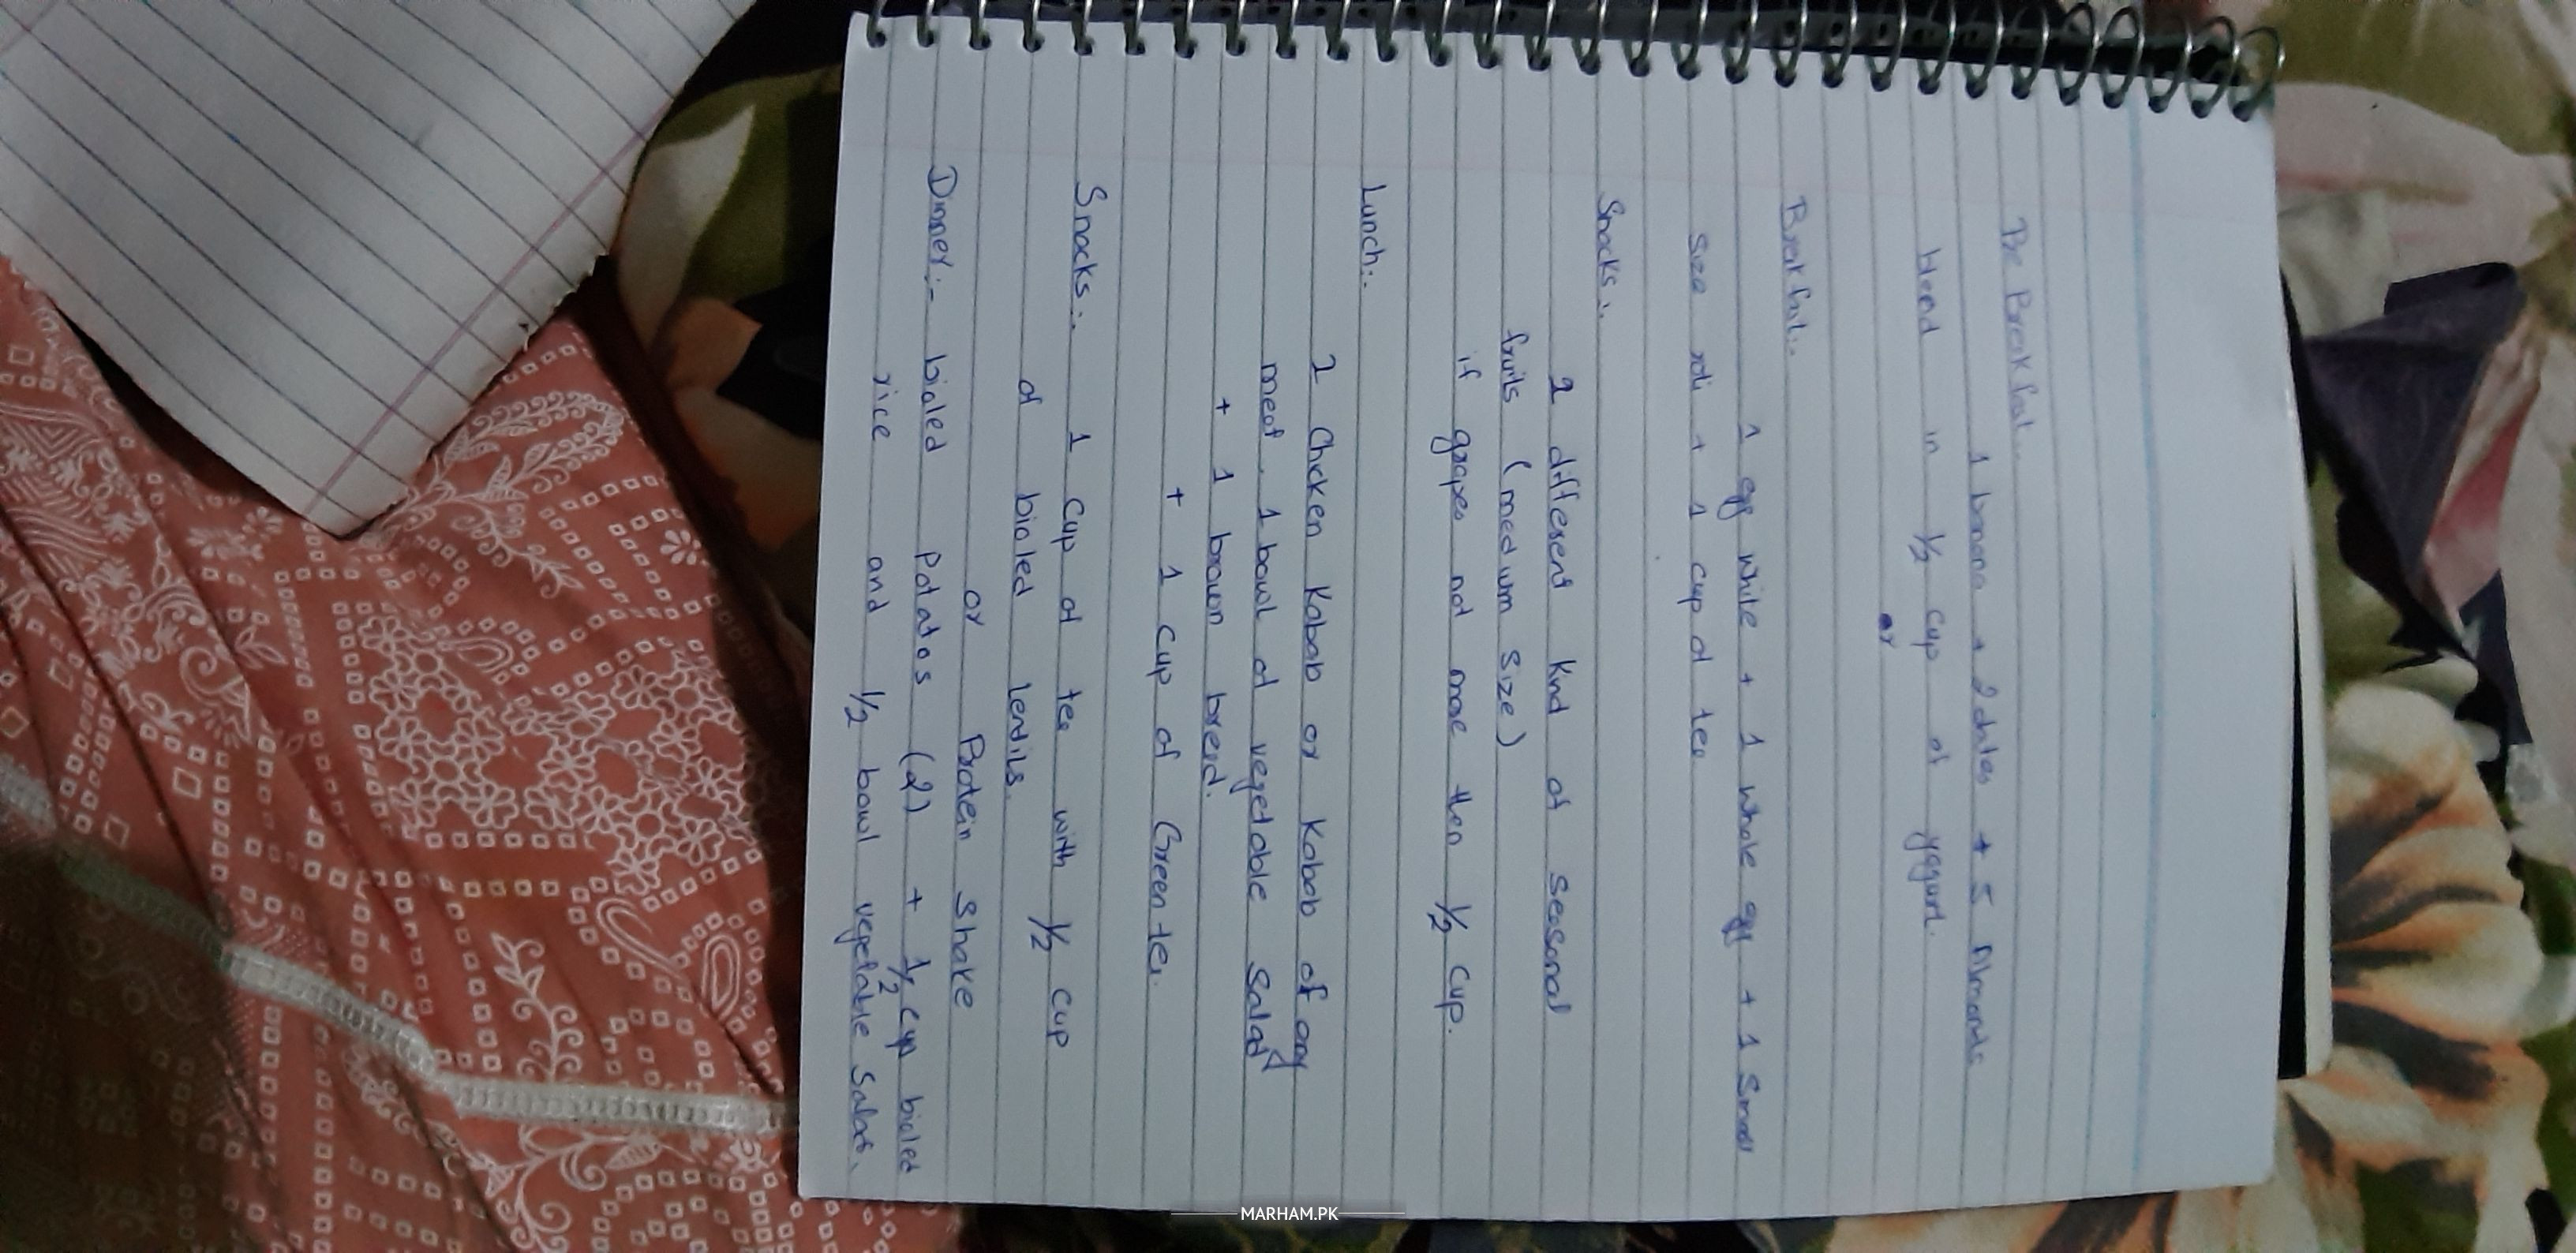 Pre Breakfast..
1 banana + 2 dates + 5 Almonds
blend in 1/2 cup of yogurt.
or
Breakfast:.
1 egg white + 1 whole egg + 1 small
size roti + 1 cup of tea
Snacks:.
2 different Kind of seasonal
fruits (medium size)
if grapes not more then 1/2 cup.
Lunch:.
2 Chicken Kabab or Kabab of any
meat. 1 bowl of vegetable Salad
+ 1 brown bread.
+ 1 cup of Green tea.
Snacks:. 1 cup of tea with 1/2 cup
of bioled lentils.
or Protein Shake
Dinner:- bioled potatos (2) + 1/2 cup bioled
rice and 1/2 bowl vegetable Salat.
MARHAM.PK